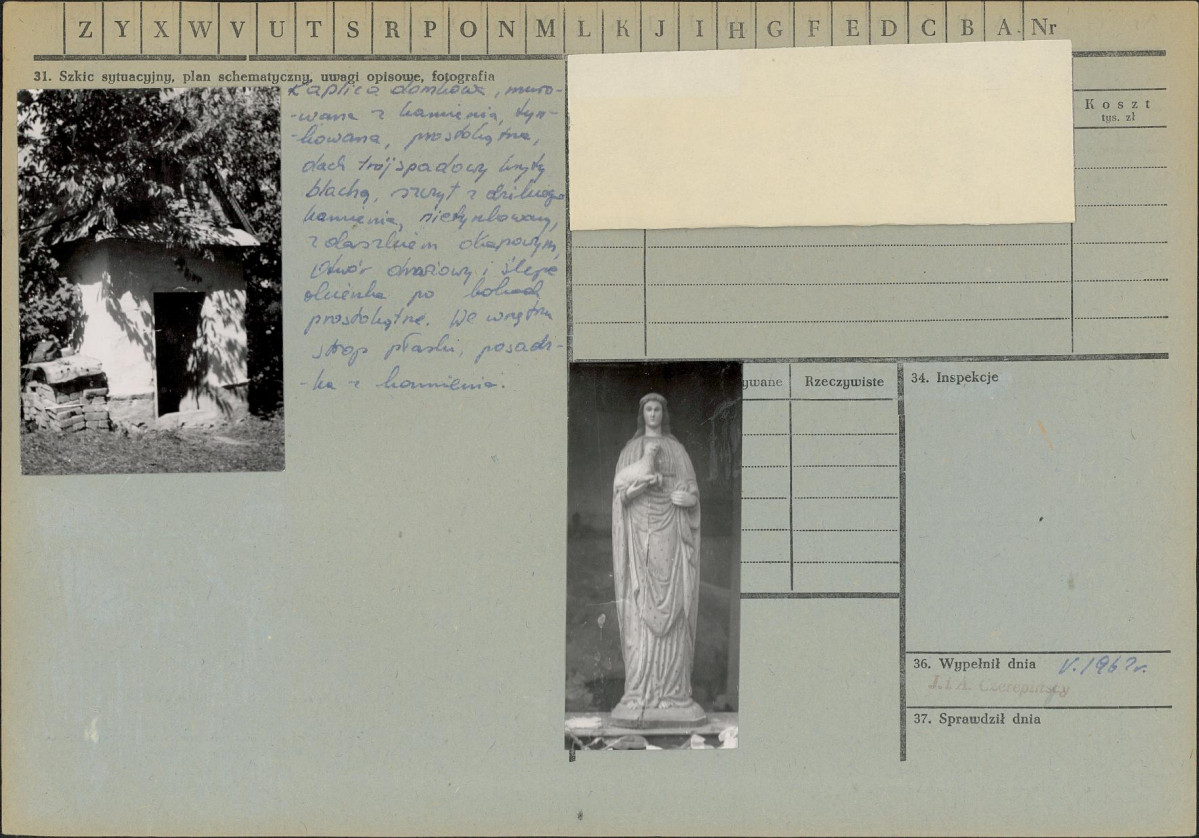 Z Y X W V U T S R P O N M L K J I H G F E D C B A Nr
31. Szkic sytuacyjny, plan schematyczny, uwagi opisowe, fotografia
Kaplica domkowa, muro-
-wana z kamienia, tyn-
-kowana, prostokątna,
dach trójspadowy kryty
blachą, szczyt z dzikiego
kamienia, nietynkowany,
z daszkiem okapowym,
Otwór drzwiowy i ślepe
okienka po bokach
prostokątne. We wnętrzu
strop płaski, posadz-
-ka z kamienia.
Koszt
tys. zł
ywane
Rzeczywiste
34. Inspekcje
36. Wypełnił dnia V. 1967r.
J. i A. Czerepińscy
37. Sprawdził dnia